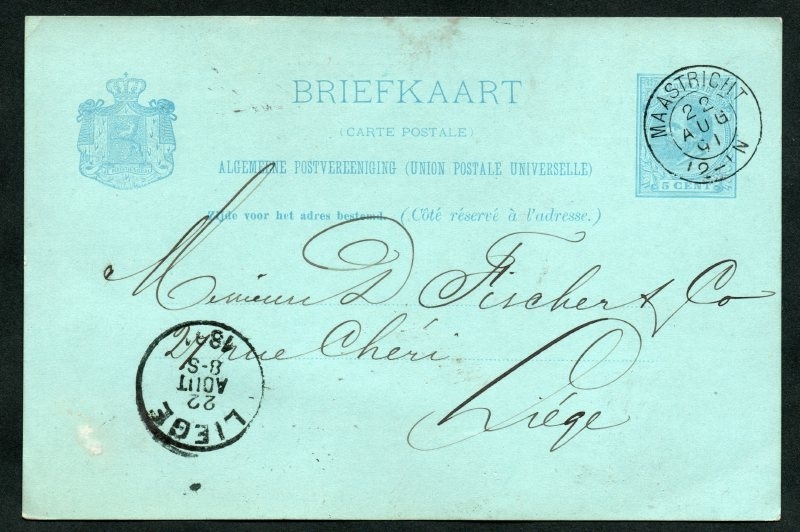 BRIEFKAART
(CARTE POSTALE)
ALGEMEENE POSTVEREENIGING (UNION POSTALE UNIVERSELLE)
Zijde voor het adres bestemd. (Côté réservé à l'adresse.)
5 CENT
MAASTRICHT
22
AUG
91
12-1N
Messieurs D Fischer & Co
27 rue Chéri
Liége
LIEGE
22
AOUT
8-S
1891